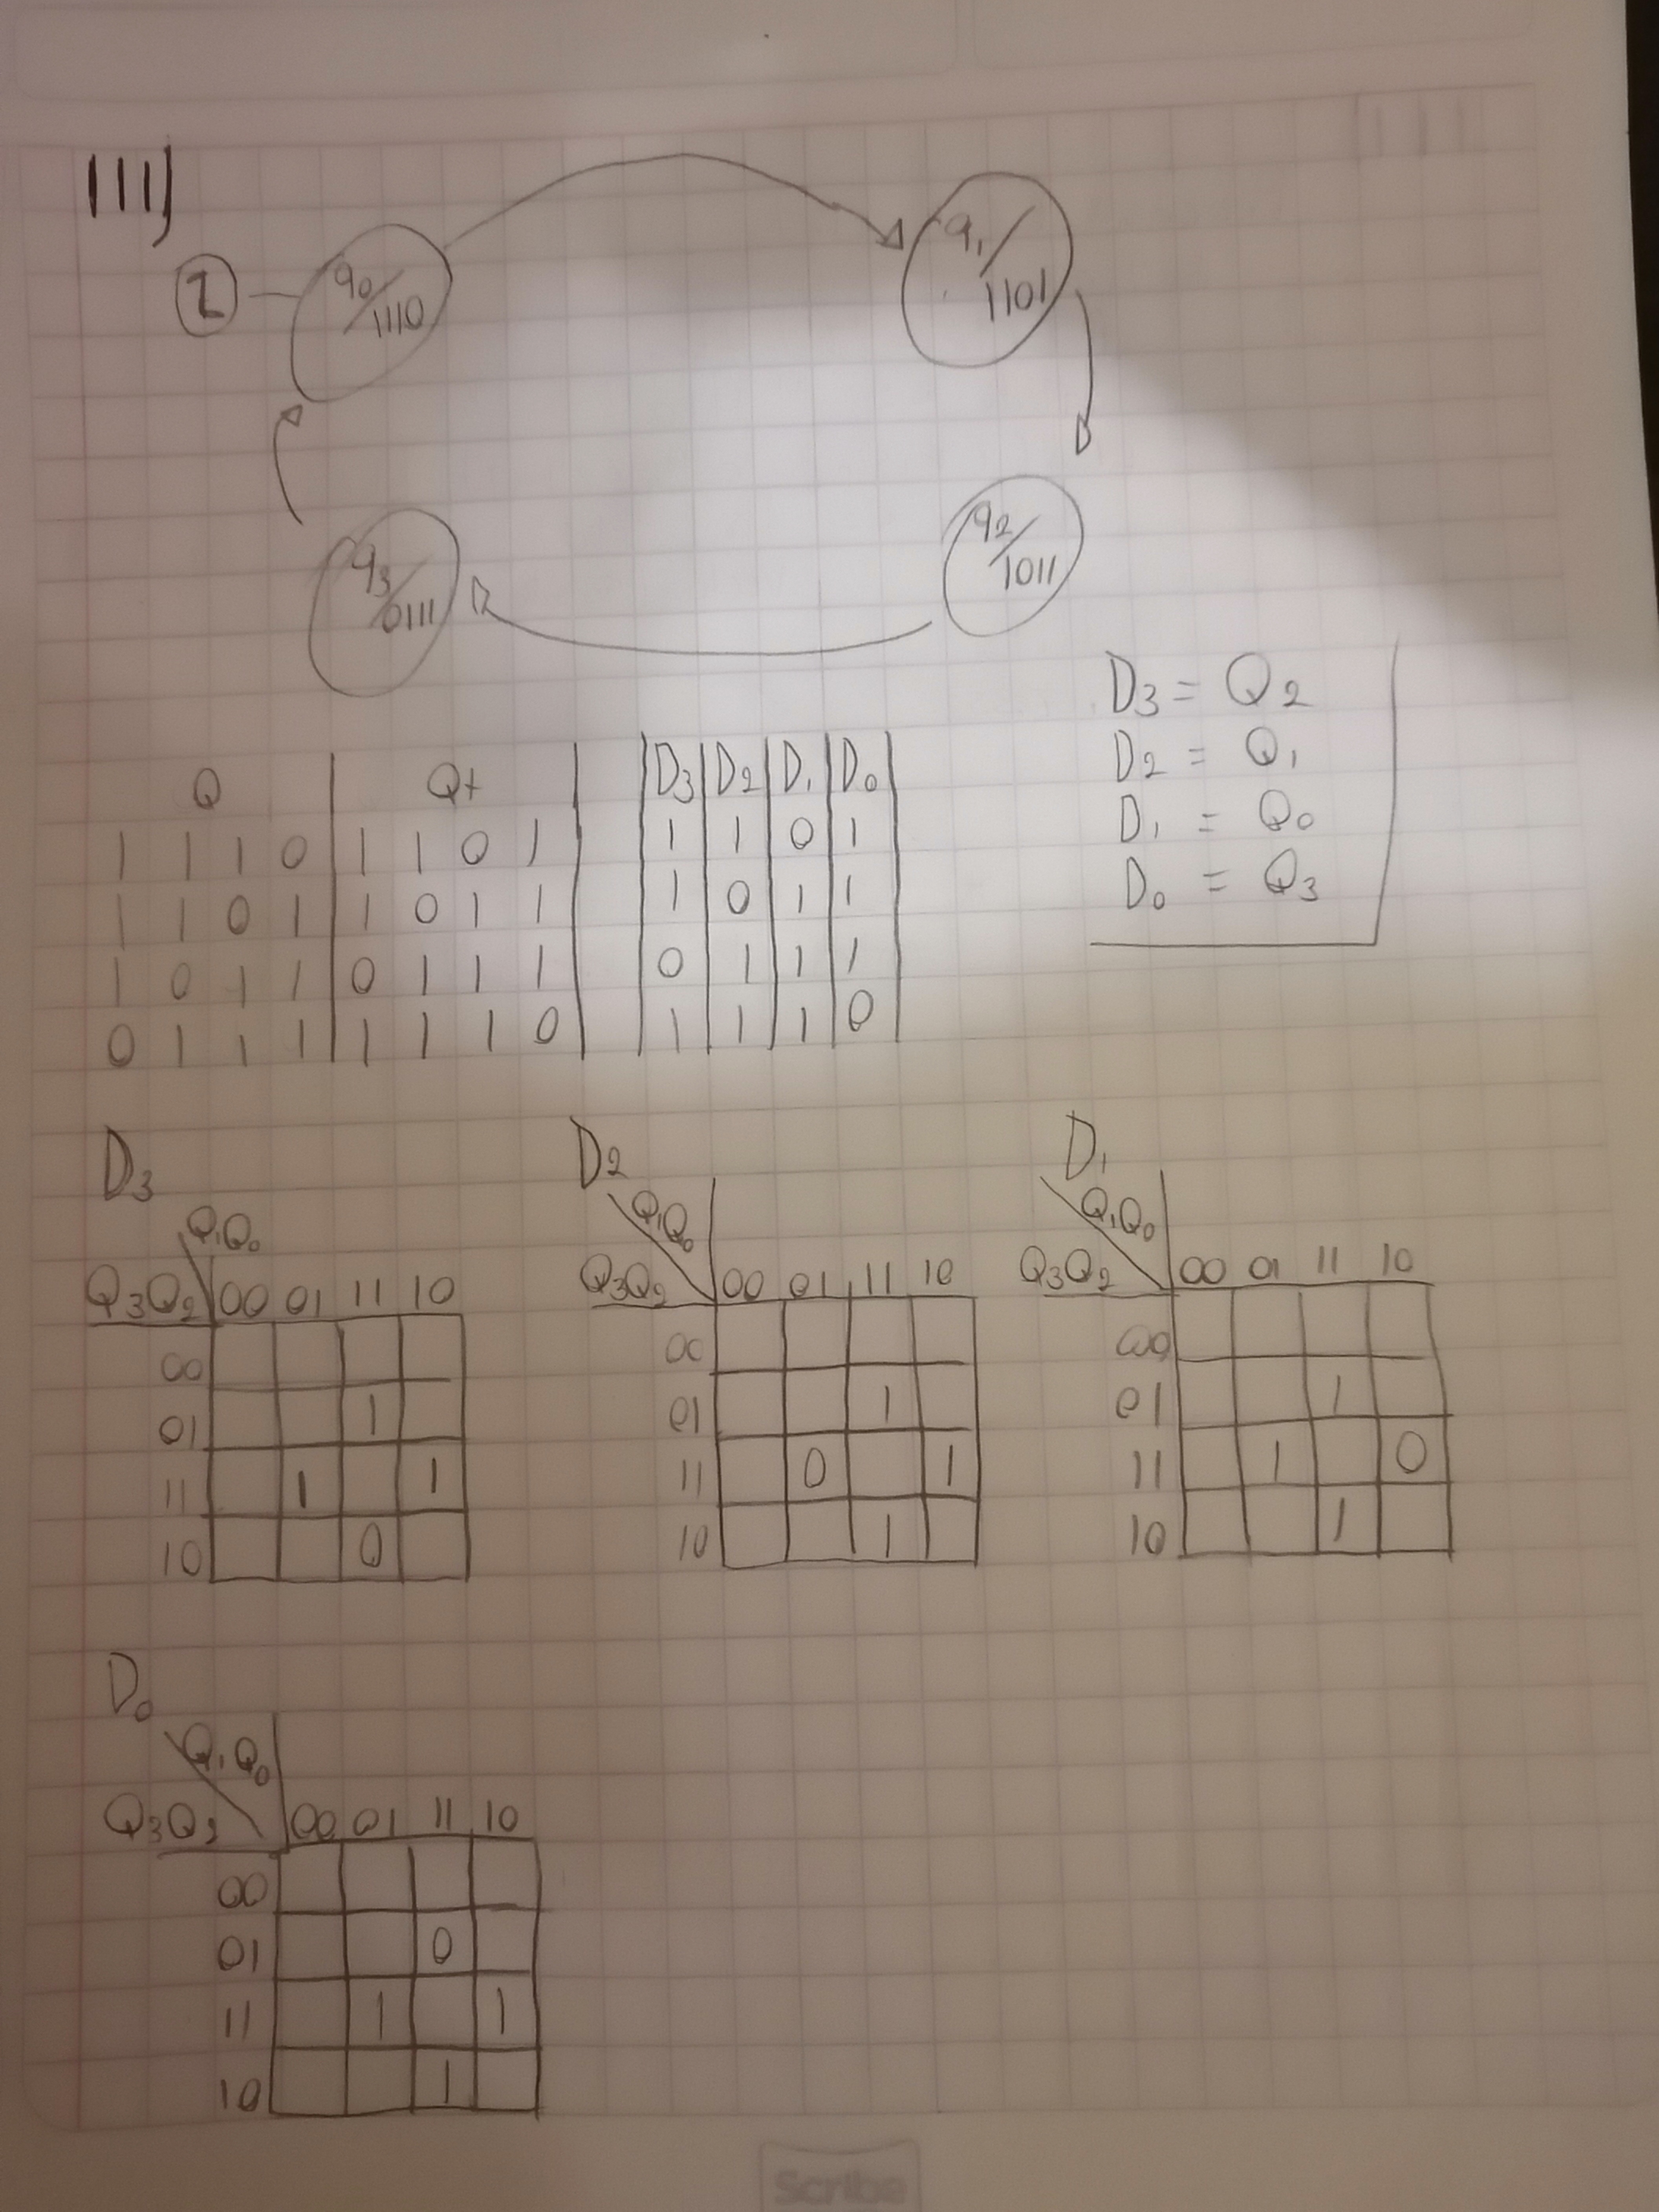 III)
I q0/1110 q1/1101
q3/0111 q2/1011
D3 = Q2
D2 = Q1
D1 = Q0
D0 = Q3
Q Q+ D3 D2 D1 D0
1 1 1 0 1 1 0 1 1 1 0 1
1 1 0 1 1 0 1 1 1 0 1 1
1 0 1 1 0 1 1 1 0 1 1 1
0 1 1 1 1 1 1 0 1 1 1 0
D3
Q1Q0
Q3Q2 00 01 11 10
00
01 1
11 1 1
10 0
D2
Q1Q0
Q3Q2 00 01 11 10
00
01 1
11 0 1
10 1
D1
Q1Q0
Q3Q2 00 01 11 10
00
01 1
11 1 0
10 1
D0
Q1Q0
Q3Q2 00 01 11 10
00
01 0
11 1 1
10 1
Scribe